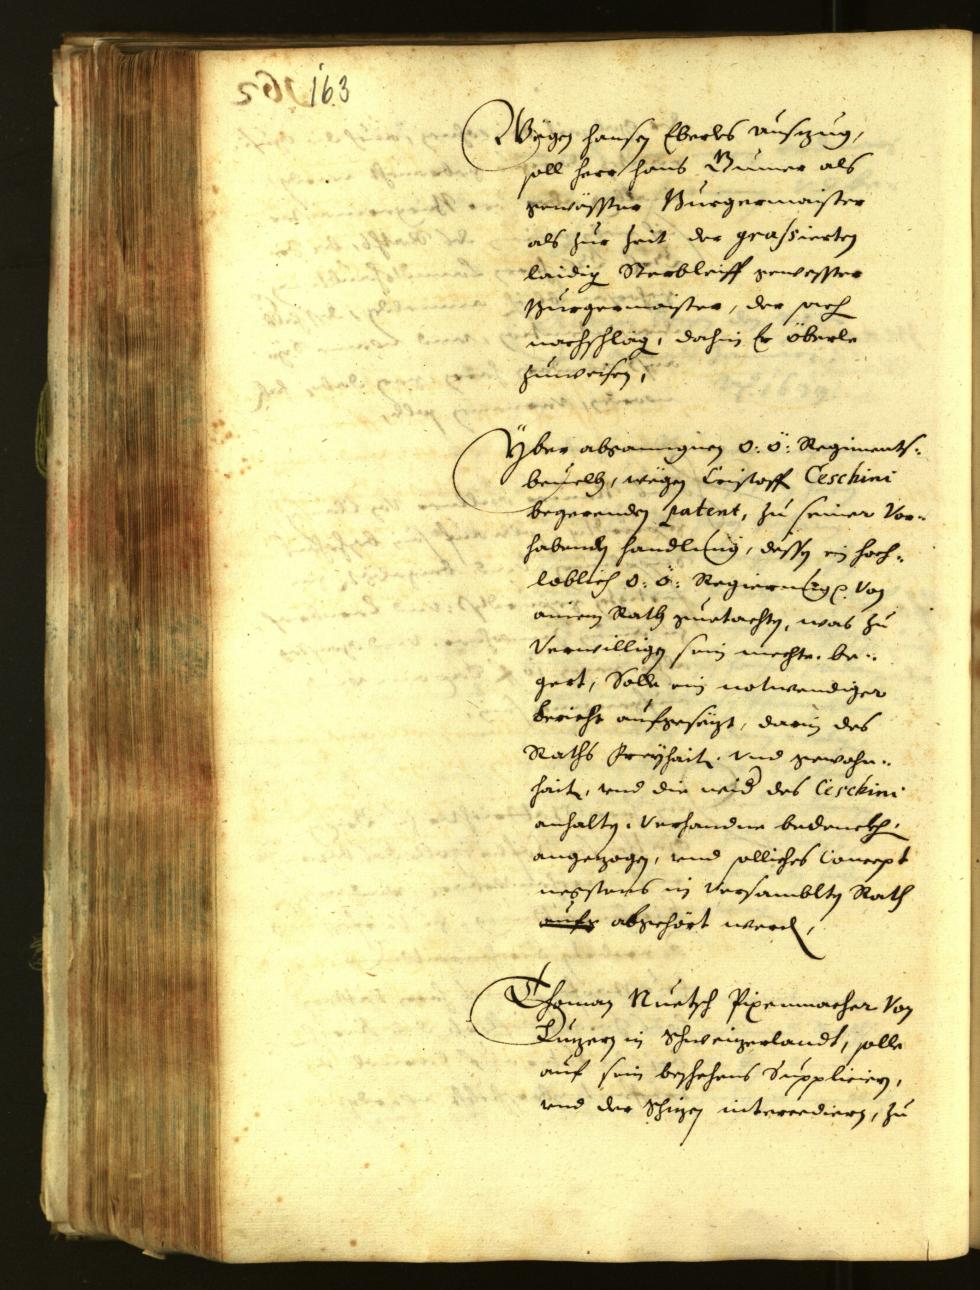 163
Wegen hansen Eberles auszug,
soll herr hans Rumer als
gewesster Burgermaister
als zur Zeit der grassierten
laidig Sterbleiff gewesster
Burgermaister, der sach
nachschlag, dahin Er Eberle
zuweisen,
Yber abgangnen O: Ö: Regiments-
beuelch, wegen Cristoff Ceschini
begerenden patent, zu seiner Vor-
habenden handlung, dessen ein hoch-
loblich O: Ö: Regierung Von
ainem Rath guetachten, was zu
Verwilligen sein mechte, be-
gert, Solle ein notwendiger
bericht aufgesezt, darin des
Raths freyhait, vnd gewohn-
hait, vnd die wid des Ceschini
anhalten, Verhandne bedenckh.
angezogen, vnd solliches Concept
negstens in Versamblten Rath
abgehört werden,
Thoman Nuetsch Pixenmacher Von
Luzern in Schweizerlandt, solle
auf sein beschehens Suppliciern,
vnd der Schizen intercediern, zu